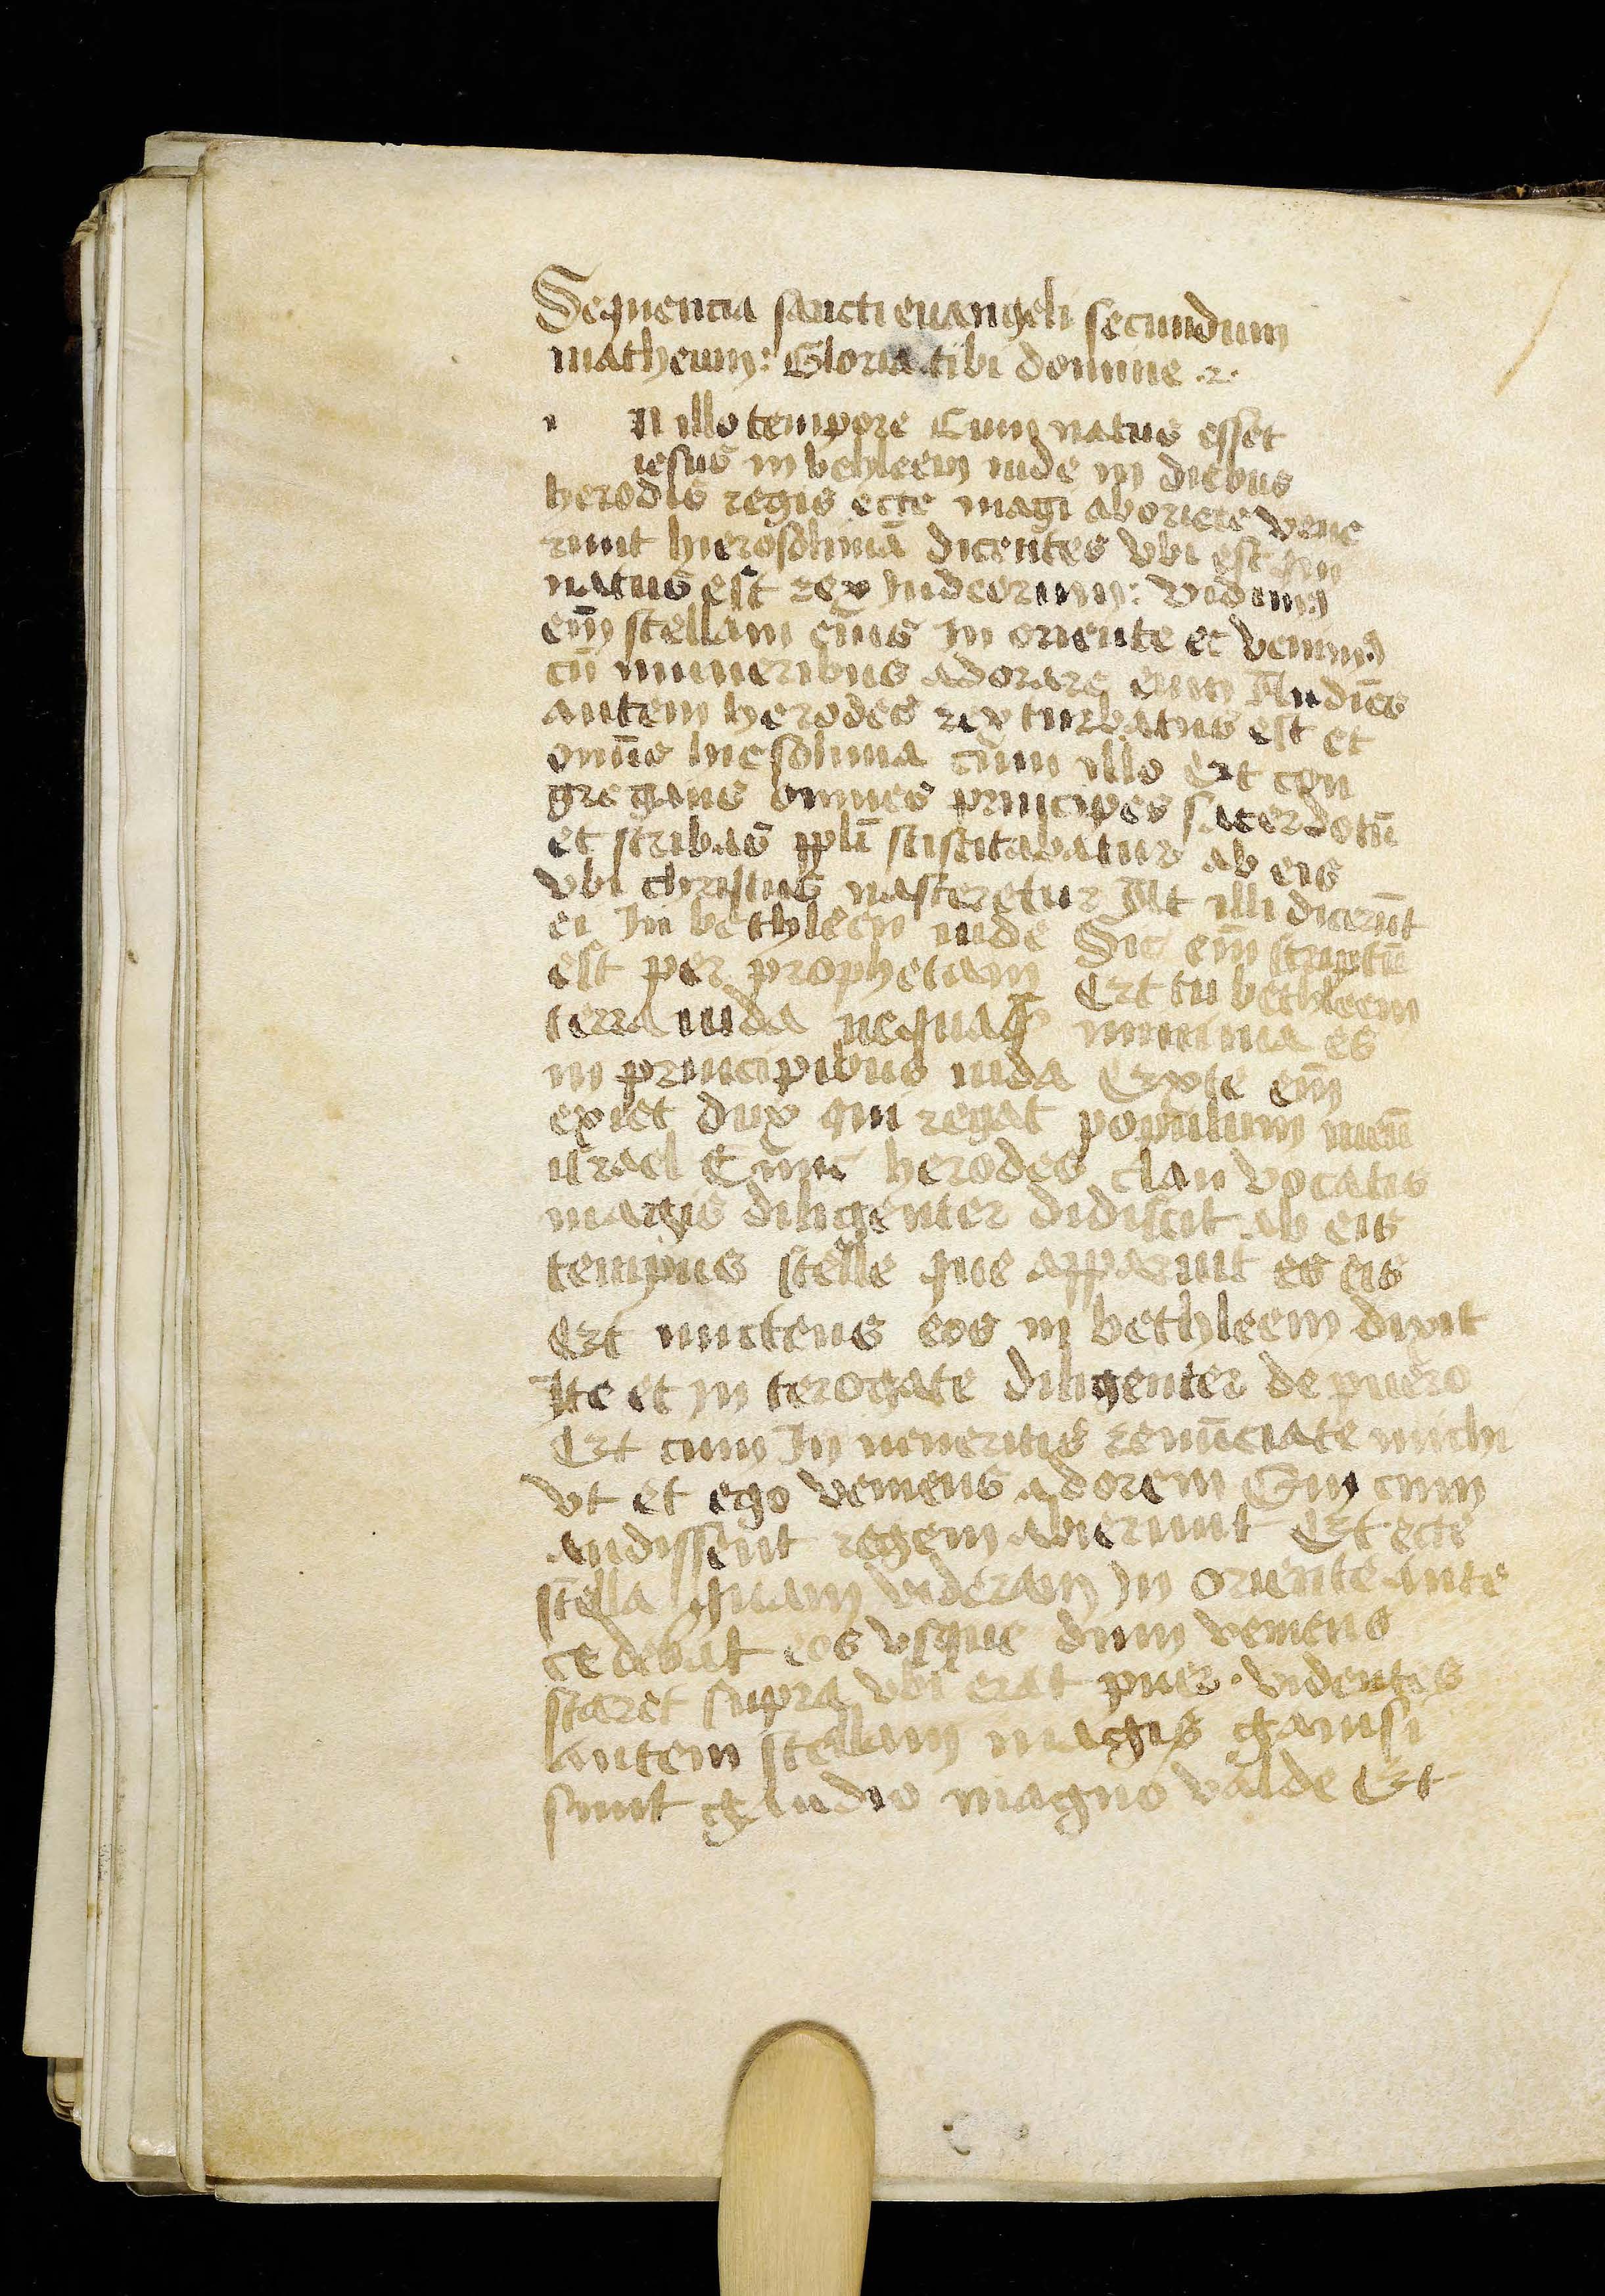 Sequencia sancti euangeli secundum
matheum: Gloria tibi domine .2.
i n illo tempore Cum natus esset
iesus in behleem iude in diebus
herodis regis ecce magi aboriete vene
runt hierosolimā dicentes vbi est qui
natus est rex Iudeorum: vidimꝰ
em̄ stellam eius In oriente et venimꝰ
cū muneribus adorare eum Audiēs
autem herodes rex turbatus est et
omīs hiesolima cum illo Et con
gregans omnes principes sacerdotū
et scribas ppl̄i sciscitabatur ab eis
vbi christus nasceretur At illi dicerūt
ei In bethleem iude Sic em̄ scriptū
est per prophetam Et tu bethleem
terra iuda nequaq̄ minima es
in principibus iuda Exte em̄
exiet dux qui regat populum meū
israel Tunc herodes clan vocatis
magis diligenter didiscit ab eis
tempus stelle que apparuit es eis
Et mictens eos in bethleem dixit
Ite et in terogate diligenter de puero
Et cum In ueneritis renūciate michi
vt et ego veniens adorem Qui cum
audissent regem abierunt Et ecce
stella quam videran In oriente ante
cedebat eos vsque dum veniens
staret supra vbi erat puer. videntes
autem stellam magis gauisi
sunt gaudio magno valde Et